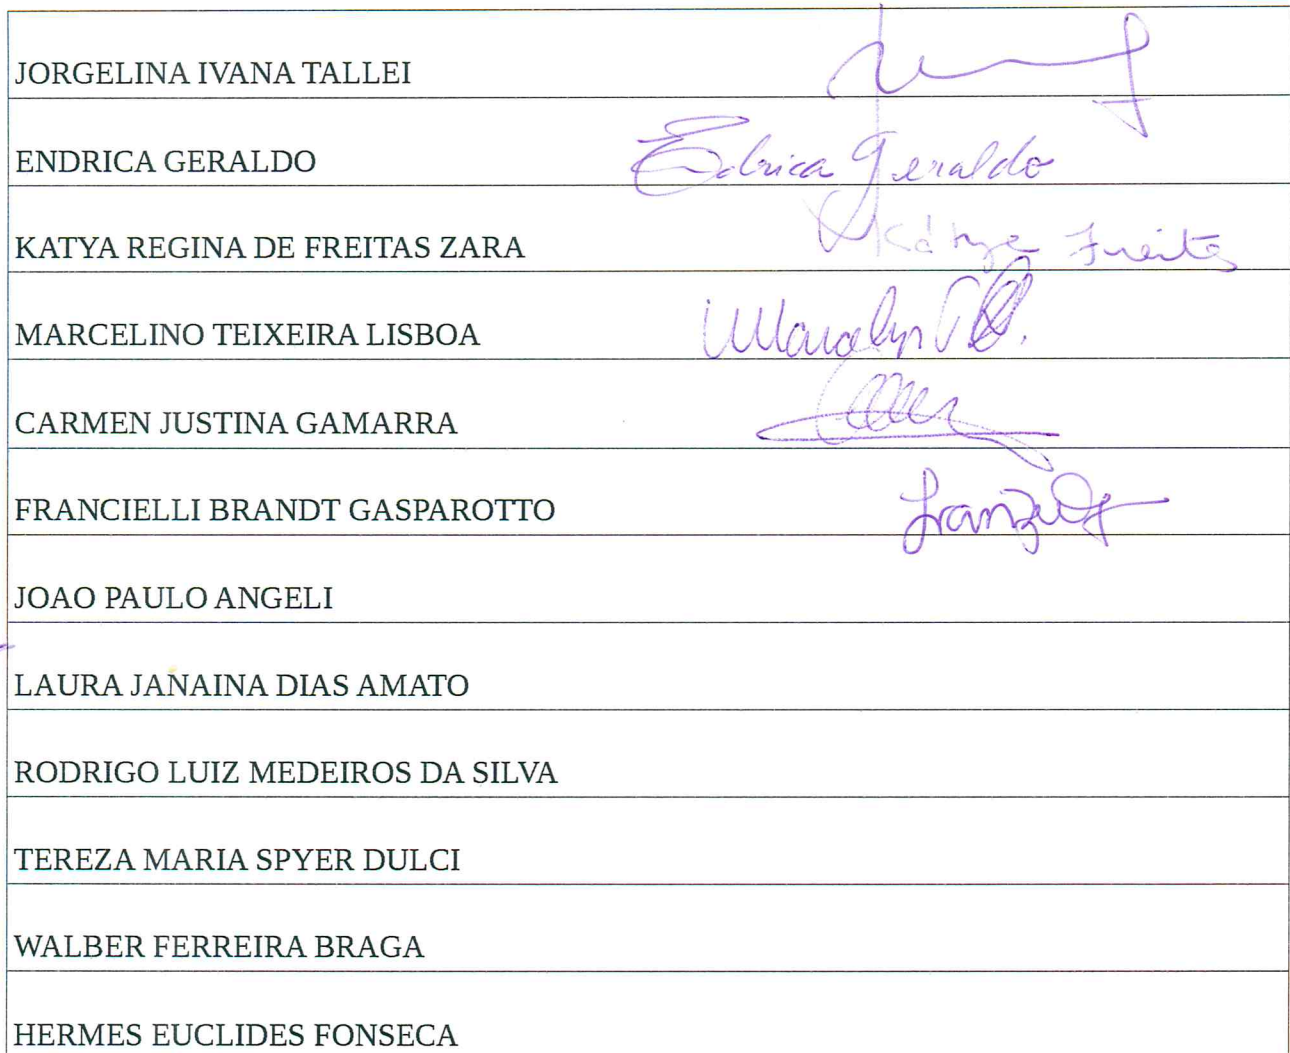 JORGELINA IVANA TALLEI
ENDRICA GERALDO Edrica Geraldo
KATYA REGINA DE FREITAS ZARA Kátya Freitas
MARCELINO TEIXEIRA LISBOA
CARMEN JUSTINA GAMARRA
FRANCIELLI BRANDT GASPAROTTO
JOAO PAULO ANGELI
LAURA JANAINA DIAS AMATO
RODRIGO LUIZ MEDEIROS DA SILVA
TEREZA MARIA SPYER DULCI
WALBER FERREIRA BRAGA
HERMES EUCLIDES FONSECA